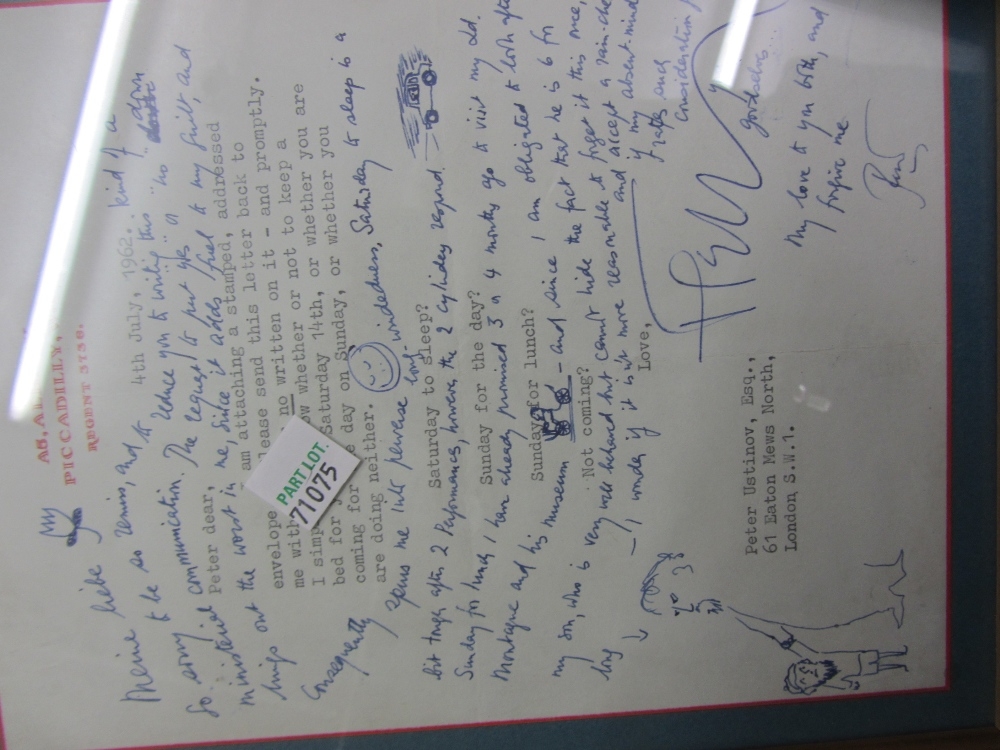 PICCADILLY,
REGENT 3756.
Meine liebe
4th July, 1962.
So sorry to be so remiss, and to reduce you to writing this kind of a
ministerial communication. The request to put "yes" or "no" down
Peter dear,
brings out the worst in me, since it adds fuel to my guilt, and
am attaching a stamped, addressed
envelope
lease send this letter back to
me with no written on it - and promptly.
ow whether or not to keep a
bed for Saturday 14th, or whether you are
coming for day on Sunday, or whether you
are doing neither.
Consequently spurs me into perverse long-windedness. Saturday to sleep is a
Saturday to sleep?
bit tough after 2 Performances, however, the 2 cylinders respond.
Sunday for the day?
Sunday for lunch, I have already promised 3 or 4 months ago to visit my old
Sunday for lunch?
Montague and his museum — and since I am obligated to look after
Not coming?
my son, who is very well behaved but cannot hide the fact that he is 6 for
long — I wonder if it isn't more reasonable to forget it this once,
and accept a rain-che
if my absent-mind
rates such
consideration
Love,
My love to you both, and
forgive me
Peter Ustinov, Esq.,
61 Eaton Mews North,
London S.W.1.
PART LOT.
71075